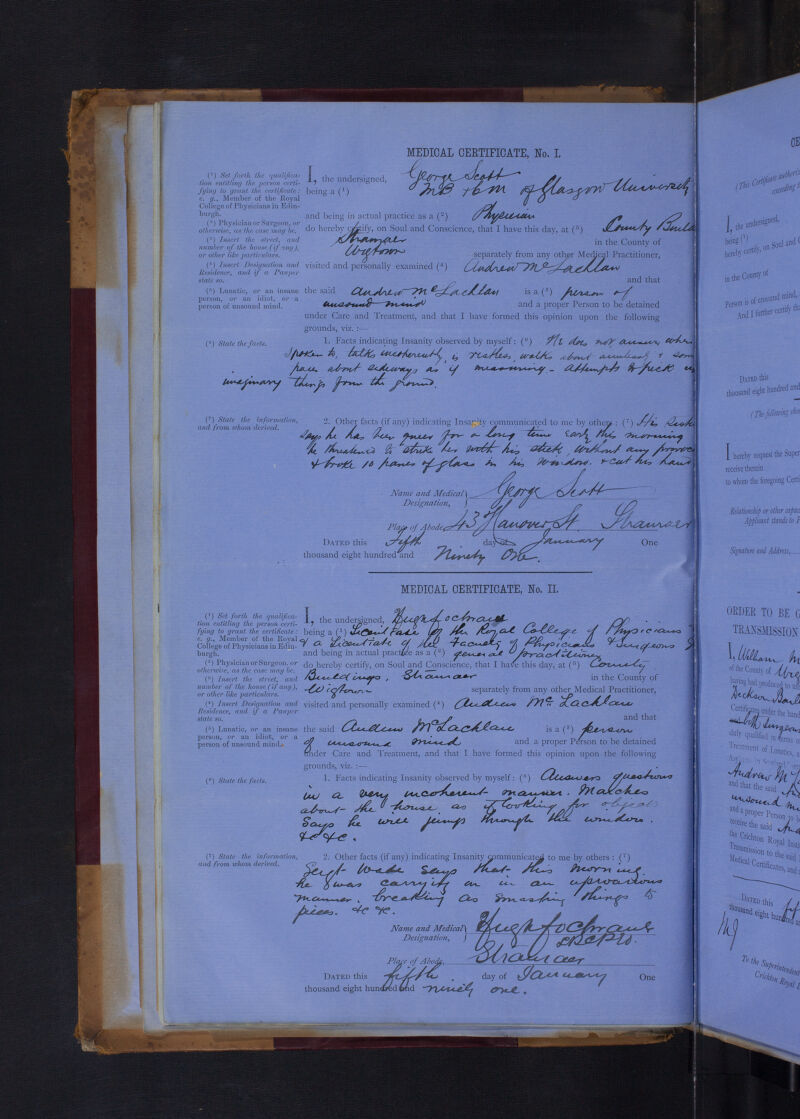 MEDICAL CERTIFICATE, No. I.
(1) Set forth the qualification entitling the person certifying to grant the certificate: e. g., Member of the Royal College of Physicians in Edinburgh.
(2) Physician or Surgeon, or otherwise, as the case may be.
(3) Insert the street, and number of the house (if any), or other like particulars.
(4) Insert Designation and Residence, and if a Pauper state so.
(5) Lunatic, or an insane person, or an idiot, or a person of unsound mind.
(6) State the facts.
(7) State the information, and from whom derived.
I, the undersigned, George Scott
being a (1) MB & CM of Glasgow University
and being in actual practice as a (2) Physician
do hereby certify, on Soul and Conscience, that I have this day, at (3) County Build
Stranraer in the County of
Wigtown separately from any other Medical Practitioner,
visited and personally examined (4) Andrew McLachlan
and that
the said Andrew McLachlan is a (5) person of
unsound mind and a proper Person to be detained
under Care and Treatment, and that I have formed this opinion upon the following
grounds, viz. :—
1. Facts indicating Insanity observed by myself: (6) He does not answer when
spoken to, talks incoherently, is restless, walks about aimlessly &
paces about sideways as if measuring - attempts to pick up
imaginary things from the ground.
2. Other facts (if any) indicating Insanity communicated to me by others: (7) His
says he has been queer for a long time early this morning
he threatened to strike her with his stick, without any
& broke 10 panes of glass in his window. & cut his hand
Name and Medical Designation, George Scott
Place of Abode, 43 Hanover St. Stranraer
DATED this Fifth day of January One
thousand eight hundred and Ninety One.
MEDICAL CERTIFICATE, No. II.
(1) Set forth the qualification entitling the person certifying to grant the certificate: e. g., Member of the Royal College of Physicians in Edinburgh.
(2) Physician or Surgeon, or otherwise, as the case may be.
(3) Insert the street, and number of the house (if any), or other like particulars.
(4) Insert Designation and Residence, and if a Pauper state so.
(5) Lunatic, or an insane person, or an idiot, or a person of unsound mind.
(6) State the facts.
(7) State the information, and from whom derived.
I, the undersigned, Hugh Cochrane
being a (1) Licentiate of the Royal College of Physicians
& a Licentiate of the Faculty of Physicians & Surgeons
and being in actual practice as a (2) general practitioner
do hereby certify, on Soul and Conscience, that I have this day, at (3) County
Buildings, Stranraer in the County of
Wigtown separately from any other Medical Practitioner,
visited and personally examined (4) Andrew McLachlan
and that
the said Andrew McLachlan is a (5) person
of unsound mind and a proper Person to be detained
under Care and Treatment, and that I have formed this opinion upon the following
grounds, viz. :—
1. Facts indicating Insanity observed by myself: (6) Answers questions
in a very incoherent manner. Marches
about the house as if looking for objects
Says he will jump through the window.
&c &c.
2. Other facts (if any) indicating Insanity communicated to me by others: (7)
Sergt says that this morning
he was carrying on in an uproarious
manner, breaking as smashing things to
pieces. &c &c.
Name and Medical Designation, Hugh Cochrane
Place of Abode, Stranraer
DATED this fifth day of January One
thousand eight hundred and ninety one.
CE
(This Certificate
I, the undersigned,
being (1)
hereby certify, on Soul and
in the County of
Person is of unsound mind,
And I further certify
DATED this
thousand eight hundred and
(The following
I hereby request the Super
receive therein
to whom the foregoing Certi
Relationship or other
Applicant stands to
Signature and Address,
ORDER TO BE G
TRANSMISSION
I, William
of the County of
having had produced to
Certificates under the hand
duly qualified in
Treatment of Lunatics,
Andrew M
and that the said
unsound
and a proper Person to
receive the said
the Crichton Royal Inst
Transmission to the said
Medical Certificates, and
DATED this
thousand eight hundred
To the Superintendent
Crichton Royal I